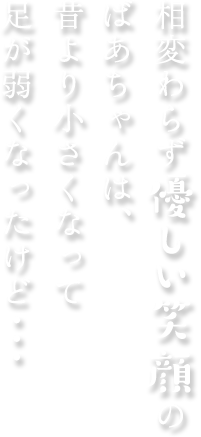 相変わらず優しい笑顔の
ばあちゃんは、
昔より小さくなって
足が弱くなったけど・・・